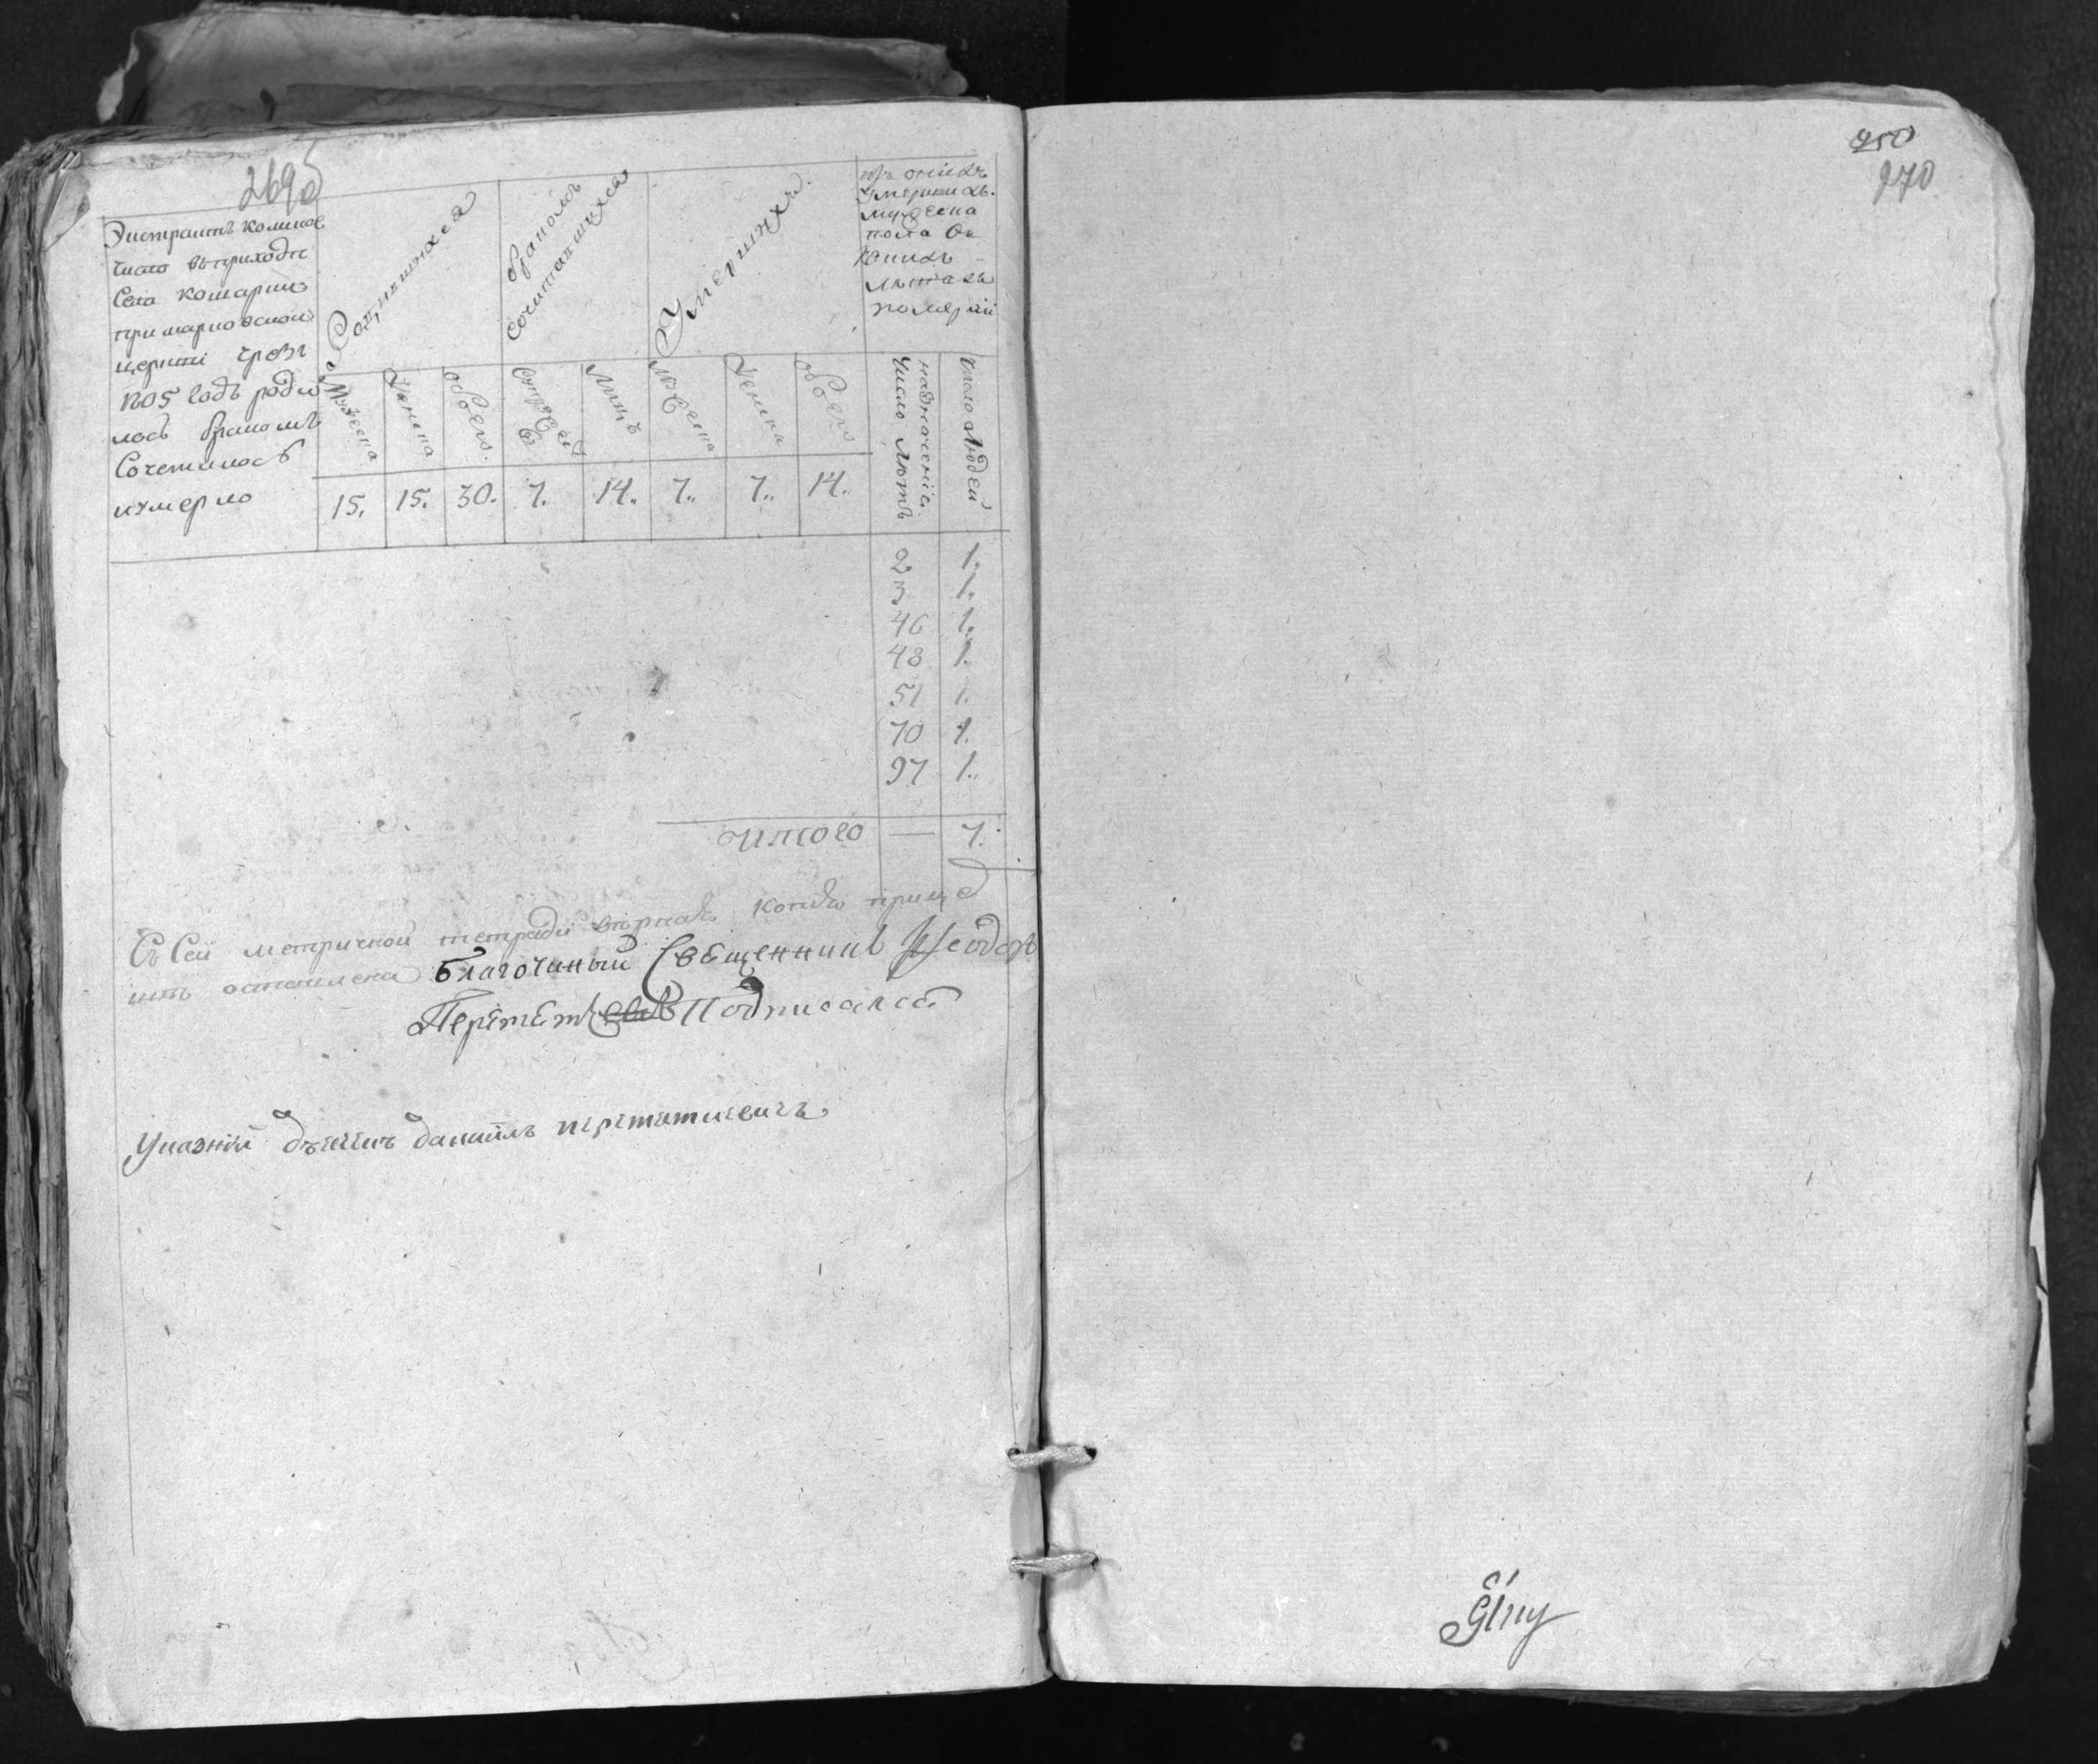 269об
Экстрактъ коликое
число въ приходѣ
села кошаринъ
при марковской
церкви чрезъ
1805 годъ роди
лось бракомъ
Сочеталось
и умерло
Родившихся
бракомъ
сочетавшихся
Умершихъ
изъ онихъ
умершихъ
мужеска
пола въ
коихъ
лѣтахъ
померли
Мужеска
Женска
обоего
Супружествъ
Лицъ
Мужеска
Женска
обоего
Число лѣтъ
назначенія
число людей
15. 15. 30. 7. 14. 7. 7. 14.
2 1.
3 1.
46 1.
48 1.
51 1.
70 1.
97 1.
Итого — 7.
Съ Сей метричной тетради вѣрная копія при це
оставлена Благочиный Священникъ Ѳеодоръ
Подписался
Указній дьячекъ данаилъ
250
270